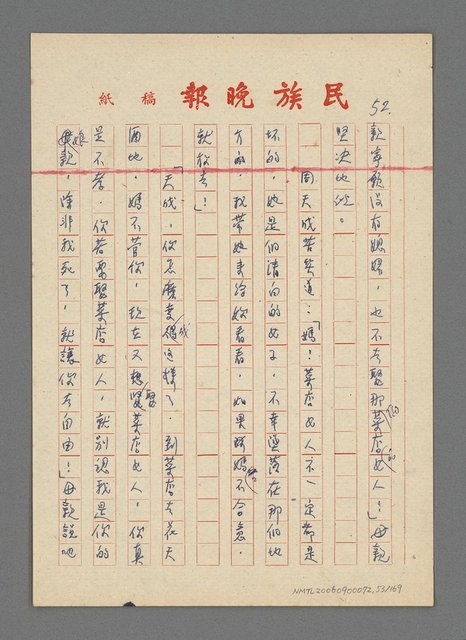 民族晚報
稿紙
52.
歎寧願沒有媳婦，也不去娶那菜店女人！」母親
堅決地從。
周天成苦笑道：「媽！菜店女人不一定都是
坏的，她是個清白的女子，不幸墮落在那個地
方的，我帶她來給你看看，如果媽不合意，
就作去！」
「天成，你怎麼变成這樣了，到菜店去花天
酒地，媽不管你，現在又想娶菜店女人，你真
是不孝。你若要娶菜店女人，就別認我是你的
娘親，除非我死了，就讓你去自由！」母親說吧
NMTL20060900072,53/169